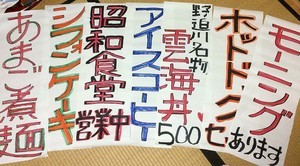 モーニング
あります
ホットドック
セ
野迫川名物
雲海丼
500
アイスコーヒー
昭和食堂
営業中
シフォンケーキ
あまご煮麺